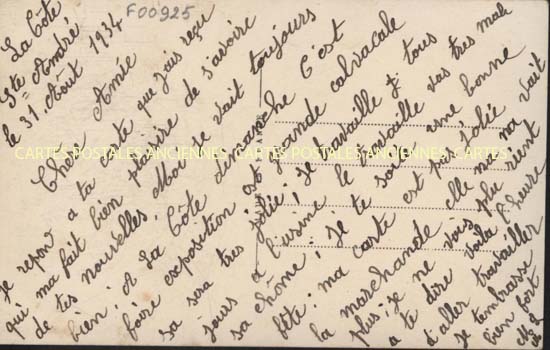 F00925
La Côte
Ste André
le 31 Août 1934
Chère Amie
je repons a ta carte que j'ais reçu
qui ma fait bien plaisire de s'avoire
de tes nouvelles. Moi je vait toujours
bien ; A La Côte dimanche C'est
foire exposition et grande calvacale
sa sera tres jolie ; Je travaille tous
jours a l'usine le travaille vas tres male
sa chôme ; je te souaite une bonne
fête ; ma carte est pas jolie
la marchande elle ma vait
plus ; je ne vois plu rient
a te dire voila l'heure
d'aller travailler
je tembrasse
bien fort
CARTES POSTALES ANCIENNES CARTES POSTALES ANCIENNES CARTES